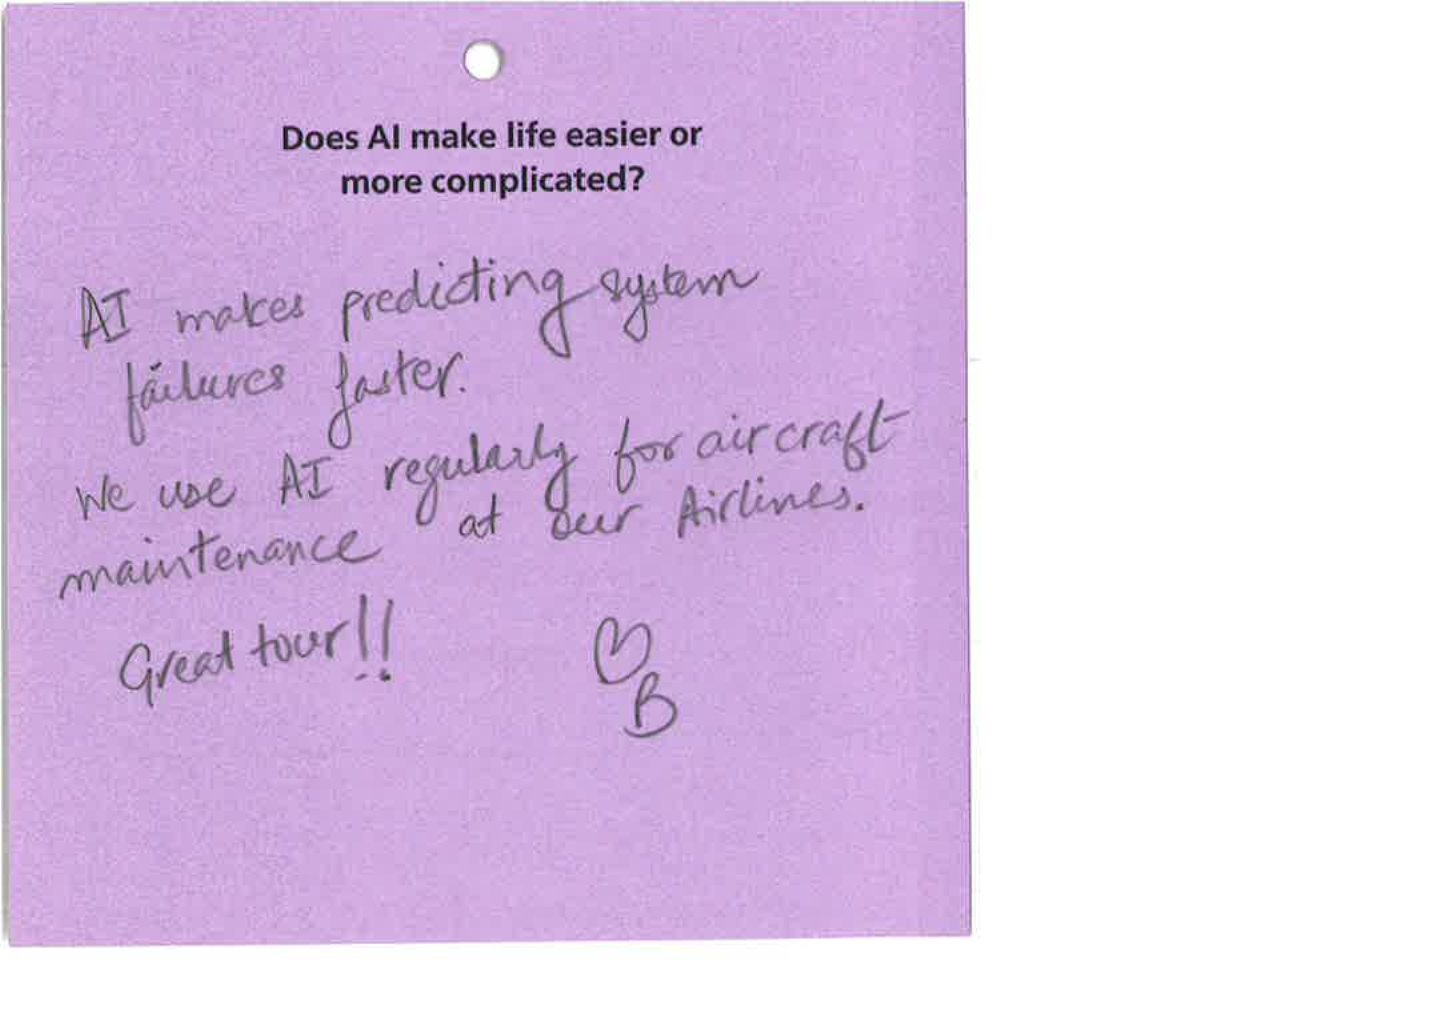 Does AI make life easier or
more complicated?
AI makes predicting system
failures faster.
We use AI regularly for aircraft
maintenance at our Airlines.
Great tour!!
♡
B